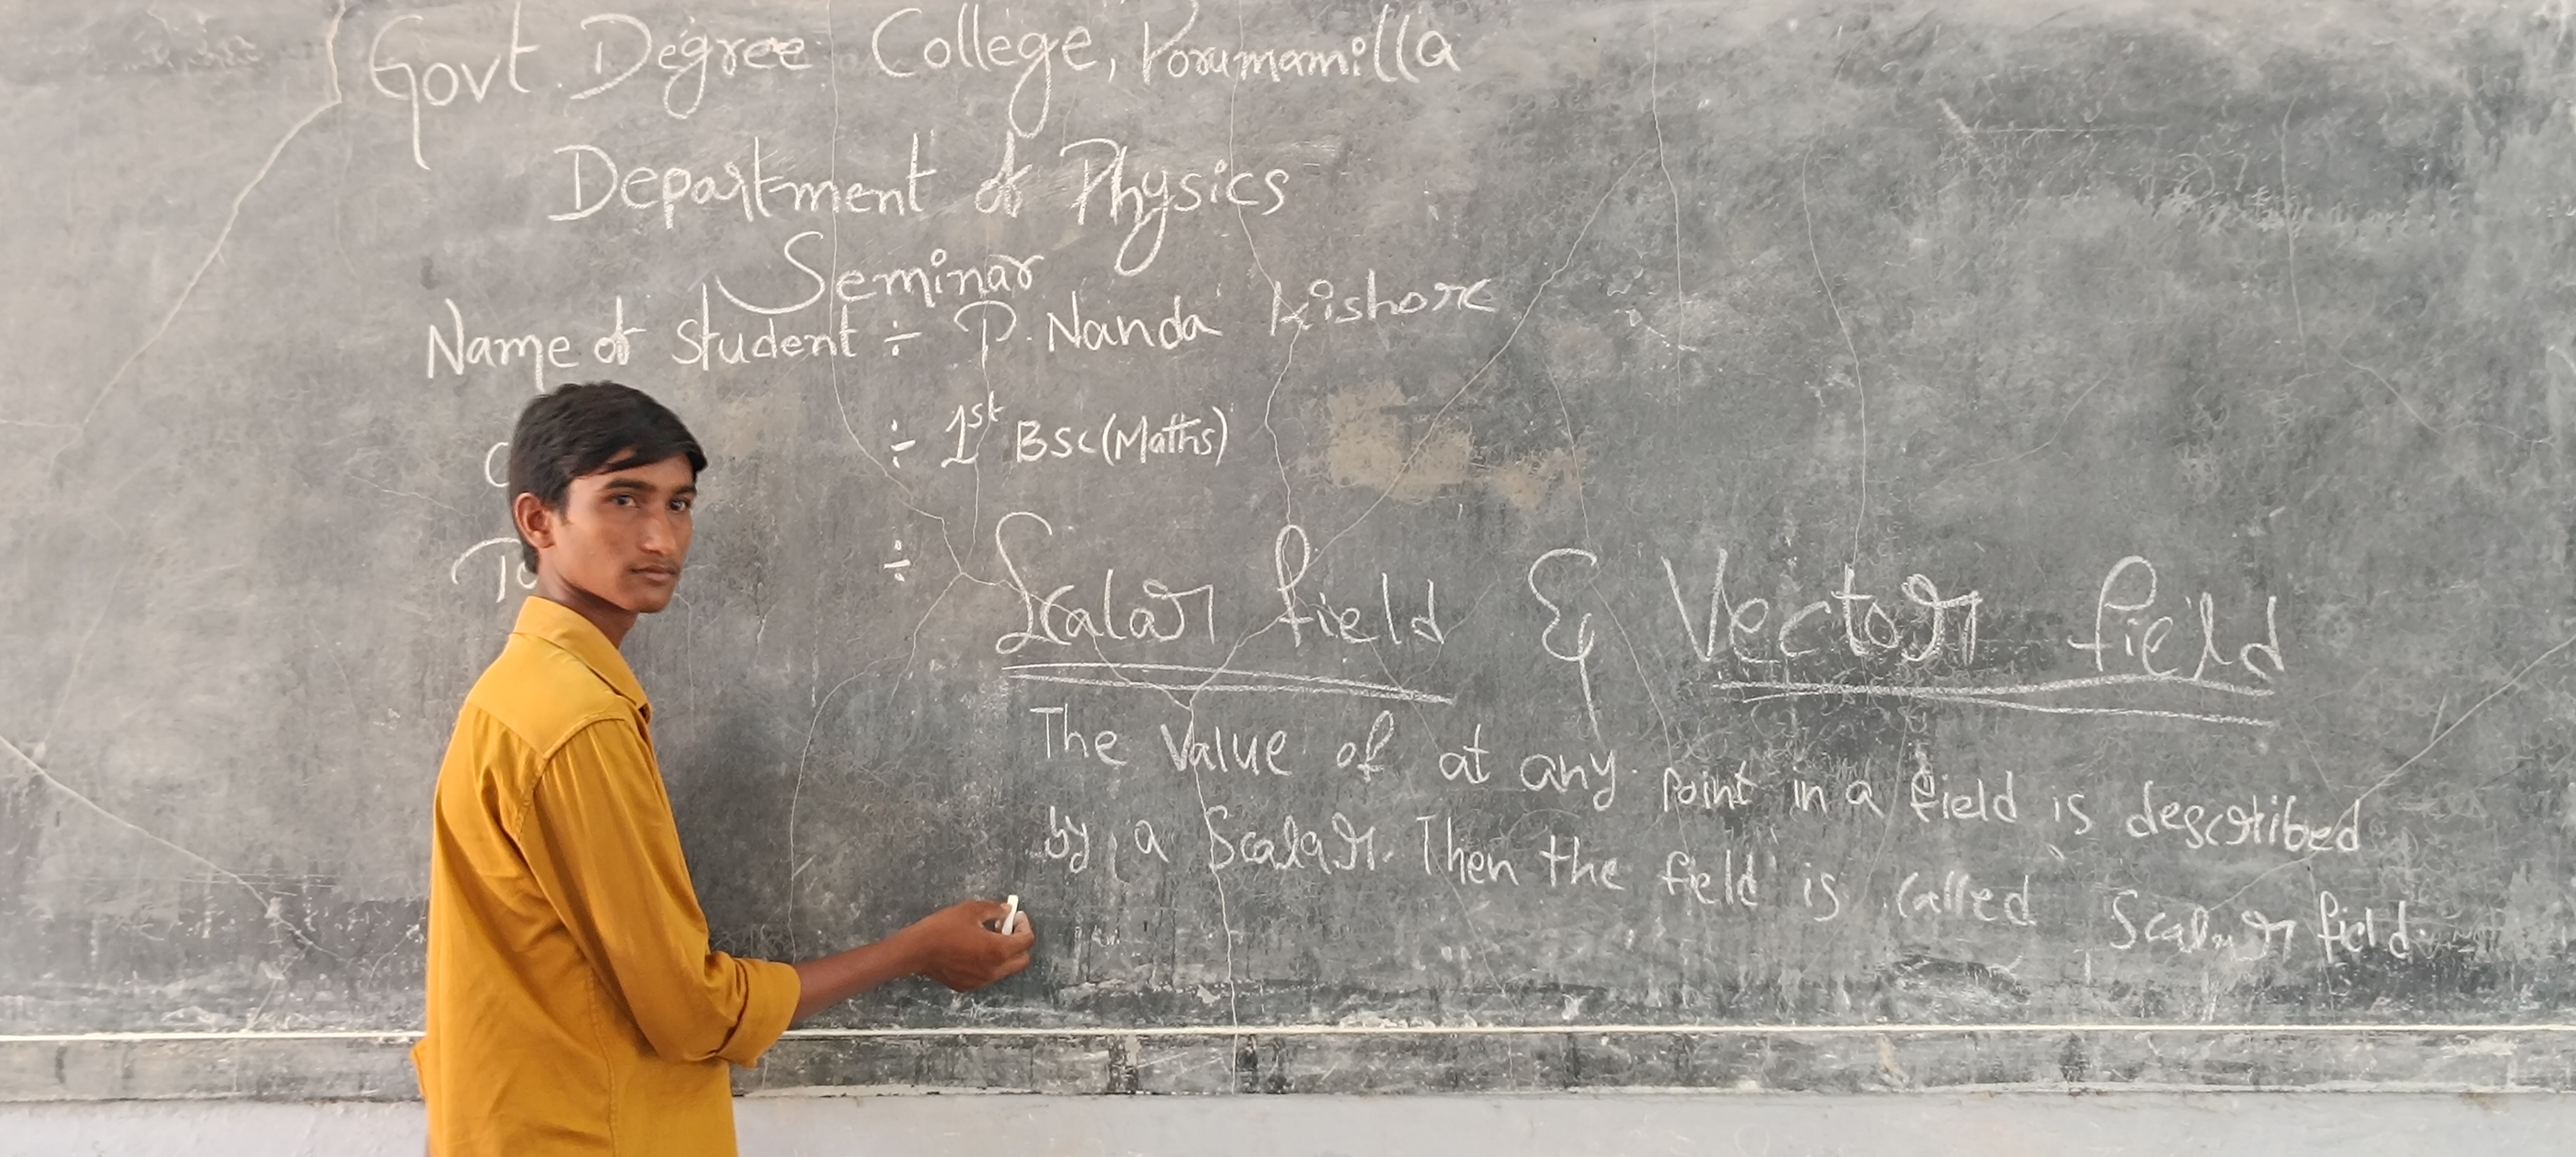 Govt. Degree College, Porumamilla
Department of Physics
Seminar
Name of student ÷ P. Nanda kishore
÷ 1st BSC (Maths)
÷ Scalar field & Vector field
The Value of at any point in a field is described
by a Scalar. Then the field is called Scalar field.